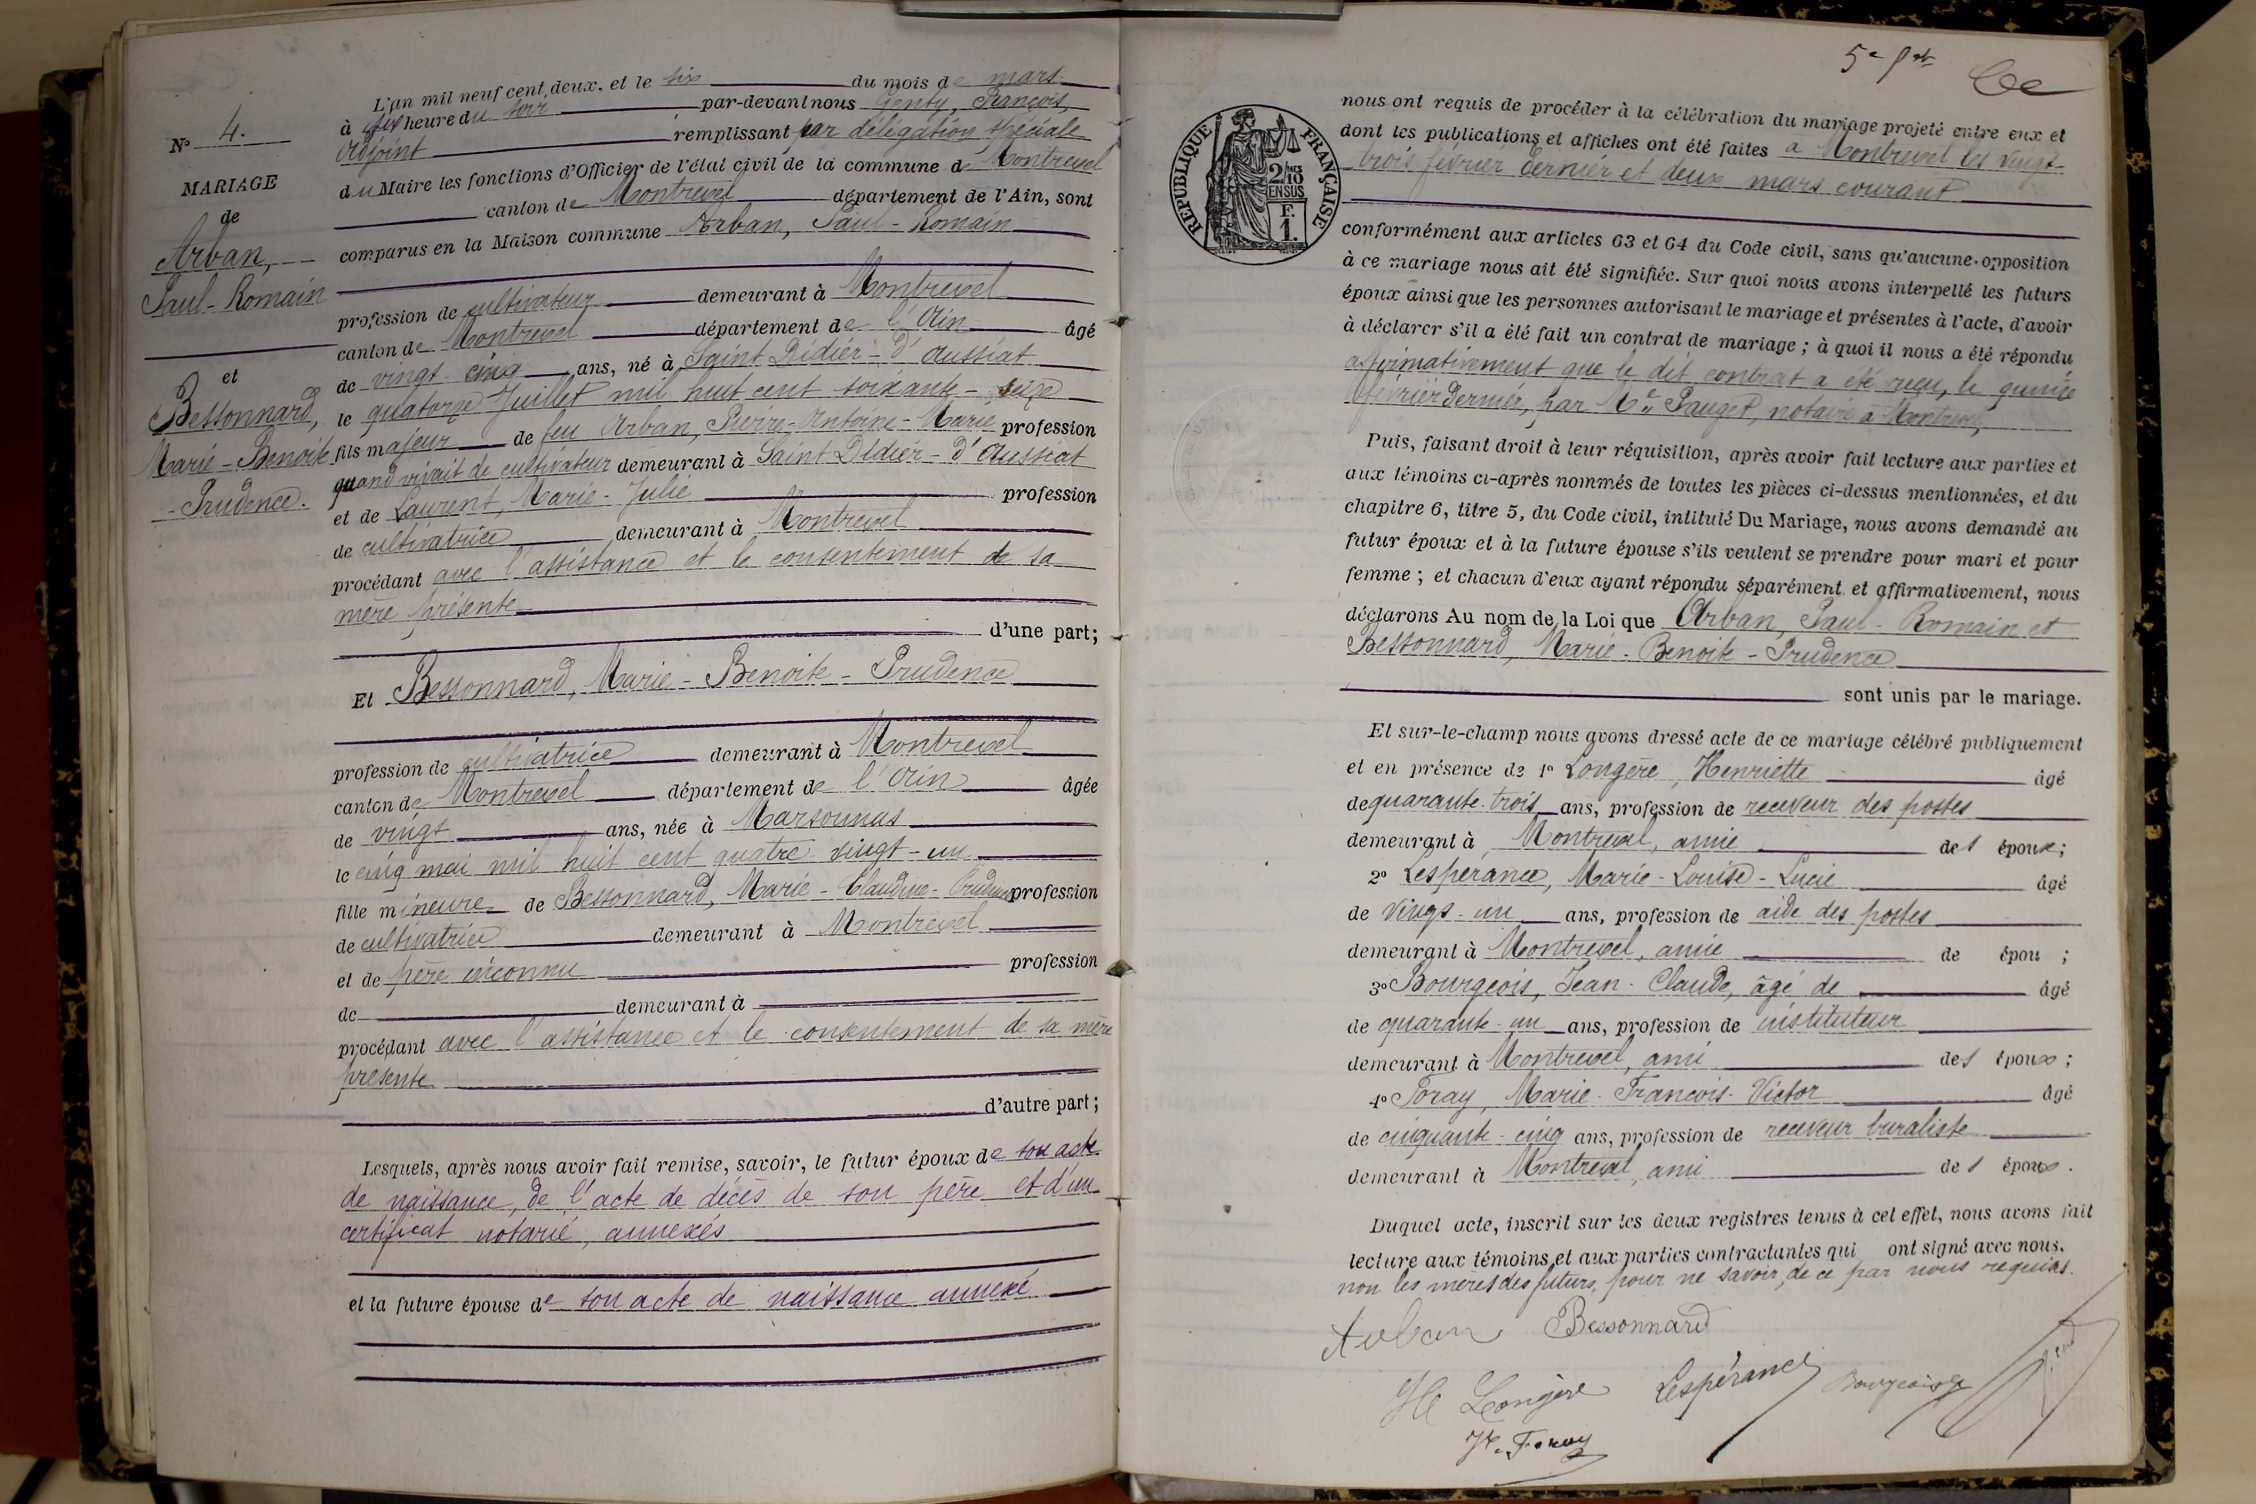 N° 4.
MARIAGE
de
Arban,
Paul-Romain
et
Bessonnard,
Marie-Benoite
-Prudence.
L'an mil neuf cent deux, et le six du mois de mars
à six heure du soir par-devant nous Genty, François,
adjoint remplissant par délégation spéciale
du Maire les fonctions d'Officier de l'état civil de la commune de Montrevel
canton de Montrevel département de l'Ain, sont
comparus en la Maison commune Arban, Paul-Romain
profession de cultivateur demeurant à Montrevel
canton de Montrevel département de l'Ain âgé
de vingt-cinq ans, né à Saint Didier-d'Aussiat
le quatorze Juillet mil huit cent soixante-seize
fils majeur de feu Arban, Pierre-Antoine-Marie profession
quand vivait de cultivateur demeurant à Saint Didier-d'Aussiat
et de Laurent, Marie-Julie profession
de cultivatrice demeurant à Montrevel
procédant avec l'assistance et le consentement de sa
mère présente
d'une part;
Et Bessonnard, Marie-Benoite-Prudence
profession de cultivatrice demeurant à Montrevel
canton de Montrevel département de l'Ain âgée
de vingt ans, née à Marsonnas
le cinq mai mil huit cent quatre vingt-un
fille mineure de Bessonnard, Marie-Claudine-Prudence profession
de cultivatrice demeurant à Montrevel
et de père inconnu profession
de demeurant à
procédant avec l'assistance et le consentement de sa mère
présente
d'autre part;
Lesquels, après nous avoir fait remise, savoir, le futur époux de son acte
de naissance, de l'acte de décès de son père et d'un
certificat notarié, annexés
et la future épouse de son acte de naissance annexé
5e
RÉPUBLIQUE FRANÇAISE
2/10
EN SUS
F.
1.
nous ont requis de procéder à la célébration du mariage projeté entre eux et
dont les publications et affiches ont été faites à Montrevel les vingt
trois février dernier et deux mars courant
conformément aux articles 63 et 64 du Code civil, sans qu'aucune opposition
à ce mariage nous ait été signifiée. Sur quoi nous avons interpellé les futurs
époux ainsi que les personnes autorisant le mariage et présentes à l'acte, d'avoir
à déclarer s'il a été fait un contrat de mariage; à quoi il nous a été répondu
affirmativement que le dit contrat a été reçu, le quinze
février dernier, par Me Pauget, notaire à Montrevel,
Puis, faisant droit à leur réquisition, après avoir fait lecture aux parties et
aux témoins ci-après nommés de toutes les pièces ci-dessus mentionnées, et du
chapitre 6, titre 5, du Code civil, intitulé Du Mariage, nous avons demandé au
futur époux et à la future épouse s'ils veulent se prendre pour mari et pour
femme; et chacun d'eux ayant répondu séparément et affirmativement, nous
déclarons Au nom de la Loi que Arban, Paul-Romain et
Bessonnard, Marie-Benoite-Prudence
sont unis par le mariage.
Et sur-le-champ nous avons dressé acte de ce mariage célébré publiquement
et en présence de 1° Longère, Henriette âgé
de quarante-trois ans, profession de receveur des postes
demeurant à Montrevel, amie des époux;
2° Lespérance, Marie-Louise-Lucie âgé
de vingt-un ans, profession de aide des postes
demeurant à Montrevel, amie de épou ;
3° Bourgeois, Jean-Claude, âgé de âgé
de quarante-un ans, profession de instituteur
demeurant à Montrevel, ami des époux;
4° Foray, Marie-François-Victor âgé
de cinquante-cinq ans, profession de receveur buraliste
demeurant à Montrevel, ami des époux.
Duquel acte, inscrit sur les deux registres tenus à cet effet, nous avons fait
lecture aux témoins et aux parties contractantes qui ont signé avec nous.
non les mères des futurs, pour ne savoir, de ce par nous requises.
Arban Bessonnard
H Longère Lespérance Bourgeois
V. Foray